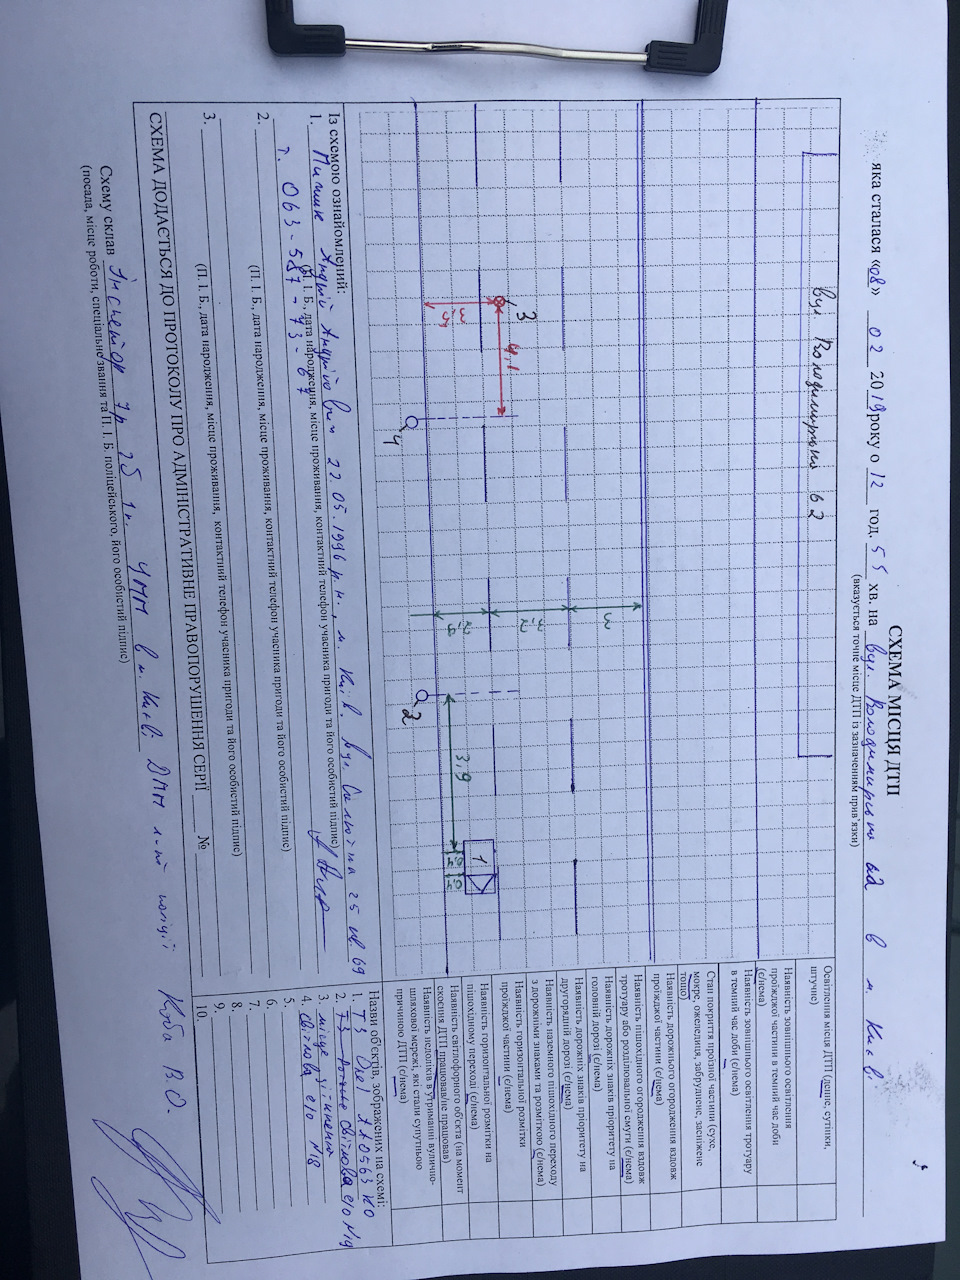 СХЕМА МІСЦЯ ДТП
яка сталася «08» 02 2019 року о 12 год. 55 хв. на вул. Володимирська 62 в м. Києві
(вказується точне місце ДТП із зазначенням прив'язки)
вул. Володимирська 62
3
3,5
4,1
4
3
3,2
2
3,9
1
Освітлення місця ДТП (денне, сутінки, штучне)
Наявність зовнішнього освітлення проїжджої частини в темний час доби (є/нема)
Наявність зовнішнього освітлення тротуару в темний час доби (є/нема)
Стан покриття проїзної частини (сухе, мокре, ожеледиця, забруднене, засніжене тощо)
Наявність дорожнього огородження вздовж проїжджої частини (є/нема)
Наявність пішохідного огородження вздовж тротуару або розділювальної смуги (є/нема)
Наявність дорожніх знаків пріоритету на головній дорозі (є/нема)
Наявність дорожніх знаків пріоритету на другорядній дорозі (є/нема)
Наявність наземного пішохідного переходу з дорожніми знаками та розміткою (є/нема)
Наявність горизонтальної розмітки проїжджої частини (є/нема)
Наявність горизонтальної розмітки на пішохідному переході (є/нема)
Наявність світлофорного об'єкта (на момент скоєння ДТП працював/не працював)
Наявність недоліків в утриманні вулично-шляхової мережі, які стали супутньою причиною ДТП (є/нема)
Із схемою ознайомлений:
1. Андрій Андрійович 22.05.1996 р.н., м. Київ, вул. 25 кв. 69
(П. І. Б., дата народження, місце проживання, контактний телефон учасника пригоди та його особистий підпис)
т. 063-587-73-67
2.
(П. І. Б., дата народження, місце проживання, контактний телефон учасника пригоди та його особистий підпис)
3.
(П. І. Б., дата народження, місце проживання, контактний телефон учасника пригоди та його особистий підпис)
Назви об'єктів, зображених на схемі:
1. ТЗ Opel АА0563КО
2. світлова е/о №19
3. місце зіткнення
4. світлова е/о №18
5.
6.
7.
8.
9.
10.
СХЕМА ДОДАЄТЬСЯ ДО ПРОТОКОЛУ ПРО АДМІНІСТРАТИВНЕ ПРАВОПОРУШЕННЯ СЕРІЇ № 
Схему склав Інспектор УПП в м. Києві ДПП поліції Коба В.О.
(посада, місце роботи, спеціальне звання та П. І. Б. поліцейського, його особистий підпис)